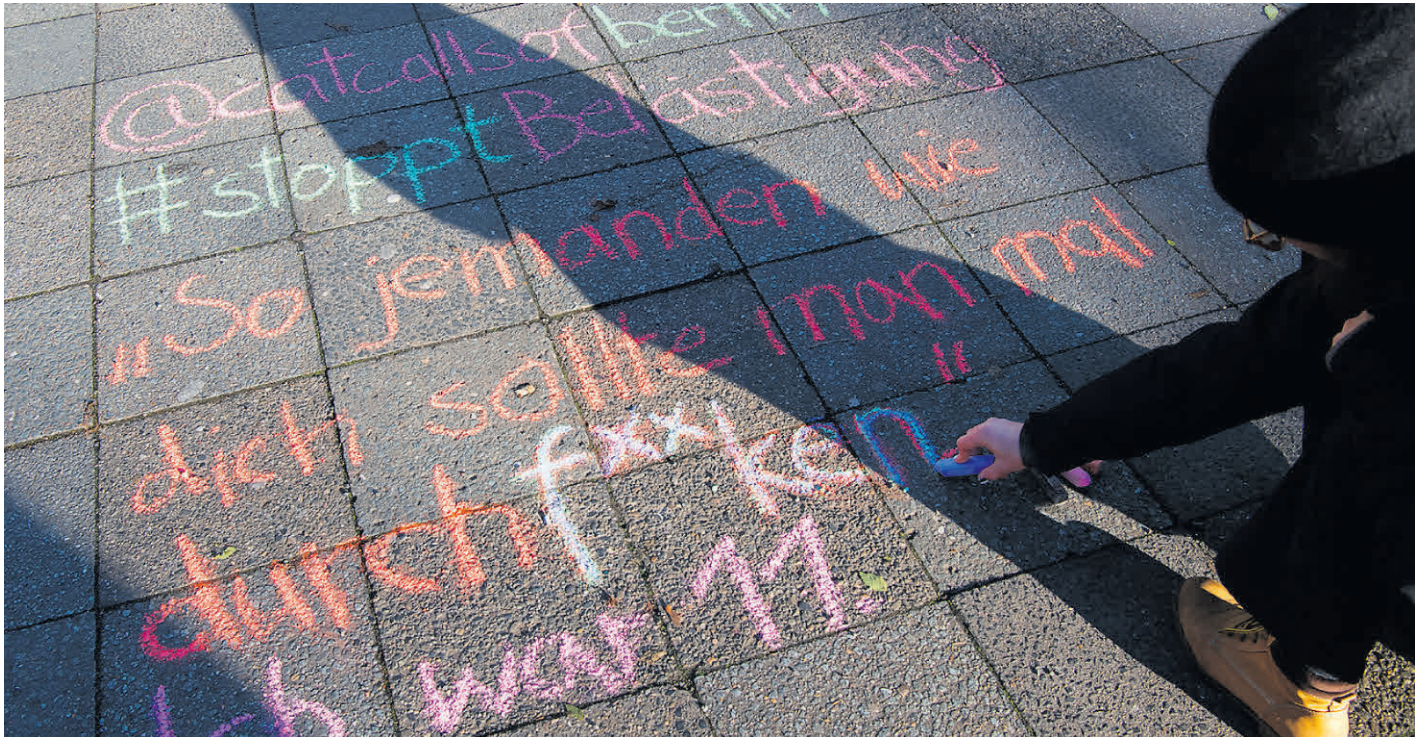 @catcallsofberlin
#stopptBelästigung
"So jemanden wie
dich sollte man mal
durchfxxken"
Ich war 11.